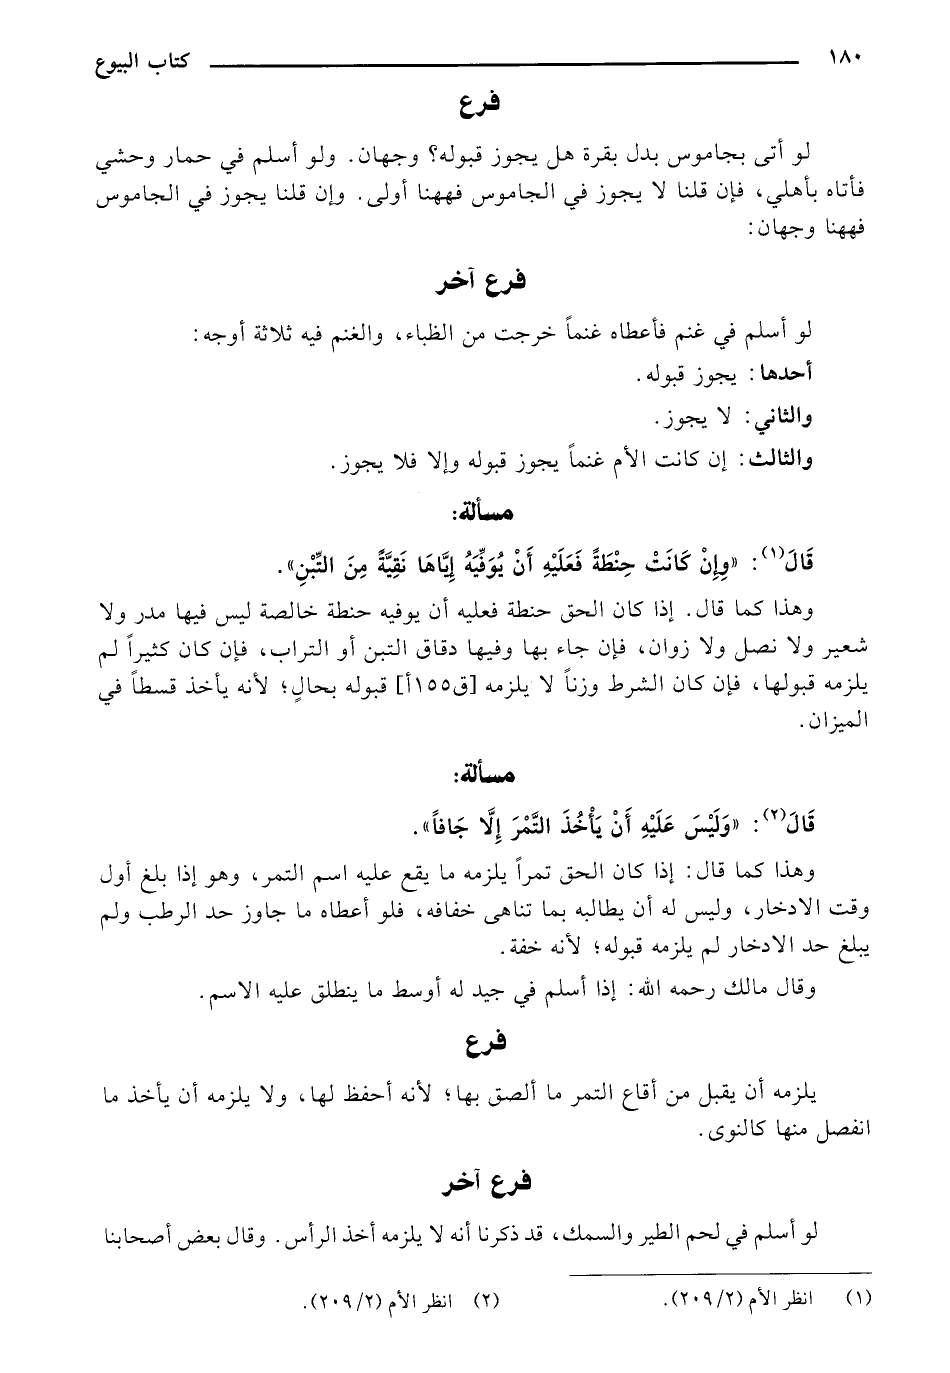 ١٨٠ كتاب البيوع
فرع
لو أتى بجاموس بدل بقرة هل يجوز قبوله؟ وجهان. ولو أسلم في حمار وحشي
فأتاه بأهلي، فإن قلنا لا يجوز في الجاموس فههنا أولى. وإن قلنا يجوز في الجاموس
فههنا وجهان:
فرع آخر
لو أسلم في غنم فأعطاه غنماً خرجت من الظباء، والغنم فيه ثلاثة أوجه:
أحدها: يجوز قبوله.
والثاني: لا يجوز.
والثالث: إن كانت الأم غنماً يجوز قبوله وإلا فلا يجوز.
مسألة:
قَالَ(١): «وِإِنْ كَانَتْ حِنْطَةً فَعَلَيْهِ أَنْ يُوَفِّيَهُ إِيَّاهَا نَقِيَّةً مِنَ التِّبْنِ».
وهذا كما قال. إذا كان الحق حنطة فعليه أن يوفيه حنطة خالصة ليس فيها مدر ولا
شعير ولا نصل ولا زوان، فإن جاء بها وفيها دقاق التبن أو التراب، فإن كان كثيراً لم
يلزمه قبولها، فإن كان الشرط وزناً لا يلزمه [ق١٥٥أ] قبوله بحالٍ؛ لأنه يأخذ قسطاً في
الميزان.
مسألة:
قَالَ(٢): «وَلَيْسَ عَلَيْهِ أَنْ يَأْخُذَ التَّمْرَ إِلَّا جَافاً».
وهذا كما قال: إذا كان الحق تمراً يلزمه ما يقع عليه اسم التمر، وهو إذا بلغ أول
وقت الادخار، وليس له أن يطالبه بما تناهى خفافه، فلو أعطاه ما جاوز حد الرطب ولم
يبلغ حد الادخار لم يلزمه قبوله؛ لأنه خفة.
وقال مالك رحمه الله: إذا أسلم في جيد له أوسط ما ينطلق عليه الاسم.
فرع
يلزمه أن يقبل من أقاع التمر ما ألصق بها؛ لأنه أحفظ لها، ولا يلزمه أن يأخذ ما
انفصل منها كالنوى.
فرع آخر
لو أسلم في لحم الطير والسمك، قد ذكرنا أنه لا يلزمه أخذ الرأس. وقال بعض أصحابنا
(١) انظر الأم (٢/٢٠٩). (٢) انظر الأم (٢/٢٠٩).